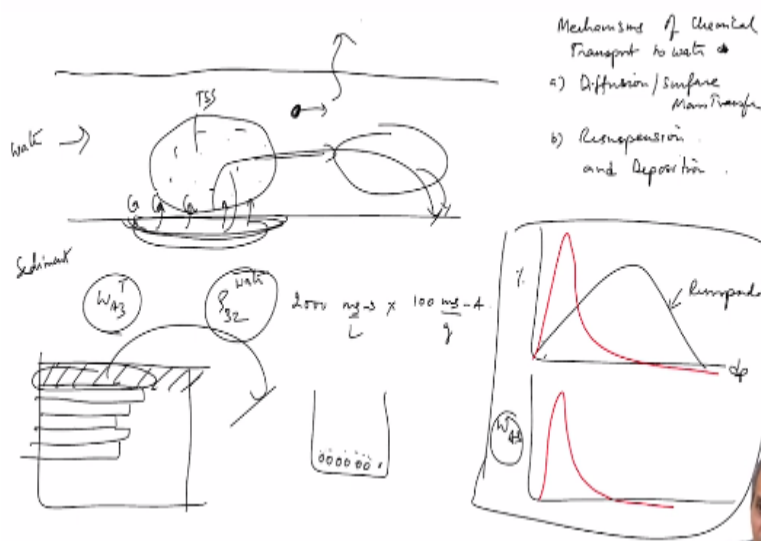 Mechanisms of Chemical
Transport to water
a) Diffusion/surface
Mass Transfer
b) Resuspension
and Deposition
TSS
Water
Sediment
W_A3^T
ρ_32^water
2000 mg-s/L × 100 mg-A/g
%
dp
W_A3